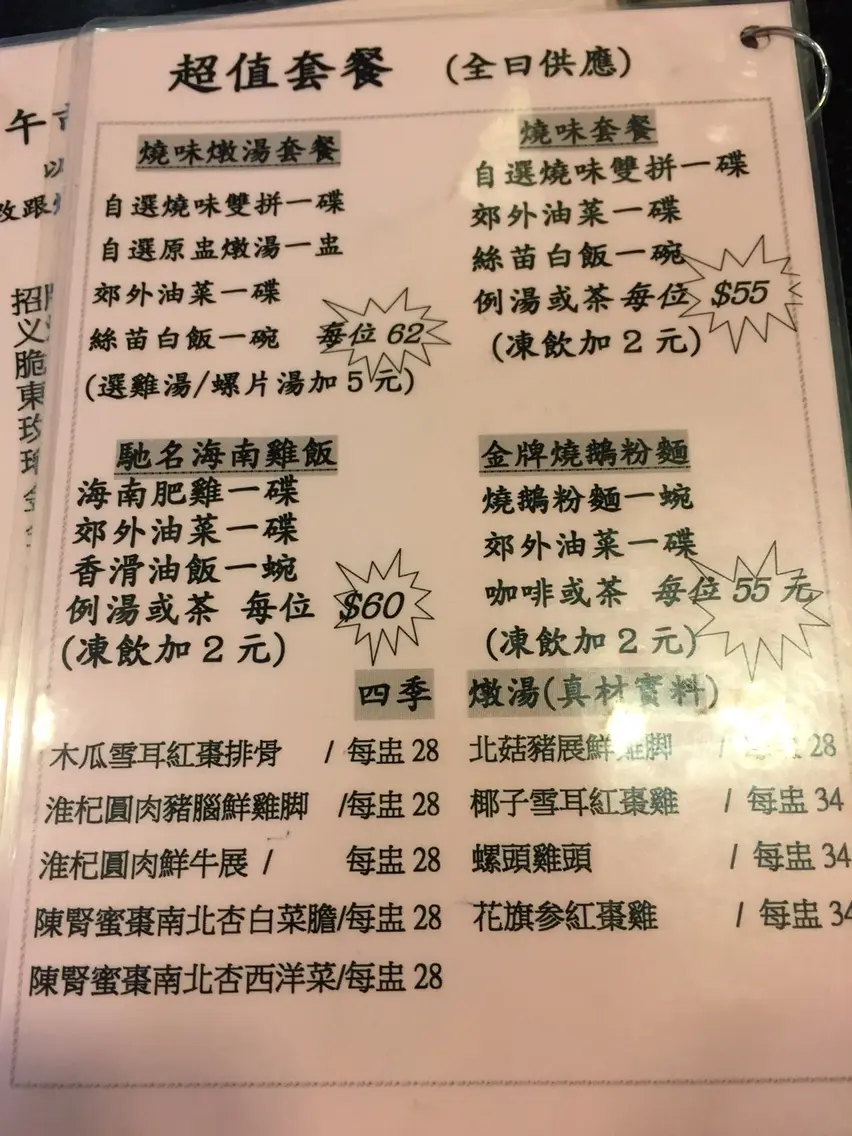 超值套餐 (全日供應)
燒味燉湯套餐
自選燒味雙拼一碟
自選原盅燉湯一盅
郊外油菜一碟
絲苗白飯一碗 每位 62
(選雞湯/螺片湯加 5 元)
燒味套餐
自選燒味雙拼一碟
郊外油菜一碟
絲苗白飯一碗
例湯或茶 每位 $55
(凍飲加 2 元)
馳名海南雞飯
海南肥雞一碟
郊外油菜一碟
香滑油飯一蜿
例湯或茶 每位 $60
(凍飲加 2 元)
金牌燒鵝粉麵
燒鵝粉麵一蜿
郊外油菜一碟
咖啡或茶 每位 55 元
(凍飲加 2 元)
四季 燉湯(真材實料)
木瓜雪耳紅棗排骨 / 每盅 28
淮杞圓肉豬腦鮮雞脚 /每盅 28
淮杞圓肉鮮牛展 / 每盅 28
陳腎蜜棗南北杏白菜膽/每盅 28
陳腎蜜棗南北杏西洋菜/每盅 28
北菇豬展鮮雞脚 / 每盅 28
椰子雪耳紅棗雞 / 每盅 34
螺頭雞頭 / 每盅 34
花旗参紅棗雞 / 每盅 34
午
改跟
招
义
脆
東
玫